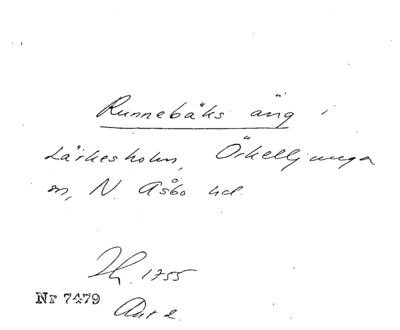 Runnebäks äng i
Lärkesholm, Örkelljunga
sn, N. Åsbo hd.
1755
Nr 7479